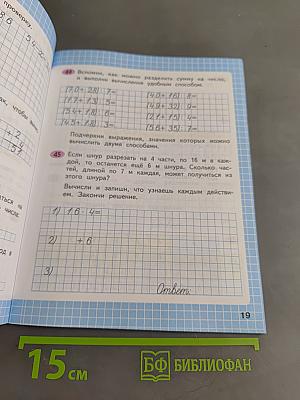 проверку.
44 Вспомни, как можно разделить сумму на число, и выполни вычисления удобным способом.
(70+28):7=
(40+16):8=
(17+13):5=
(49+32):9=
(54+18):
(21+15):4=
(45+18):3=
(56+35):7=
Подчеркни выражения, значения которых можно вычислить двумя способами.
45 Если шнур разрезать на 4 части, по 16 м в каж-
дой, то останется ещё 6 м шнура. Сколько час-
тей, длиной по 7 м каждая, может получиться из
этого шнура?
Вычисли и запиши, что узнаешь каждым действи-
ем. Закончи решение.
1) 16·4=
2) +6
3)
Ответ:
19
15 см
БФ БИБЛИОФАН